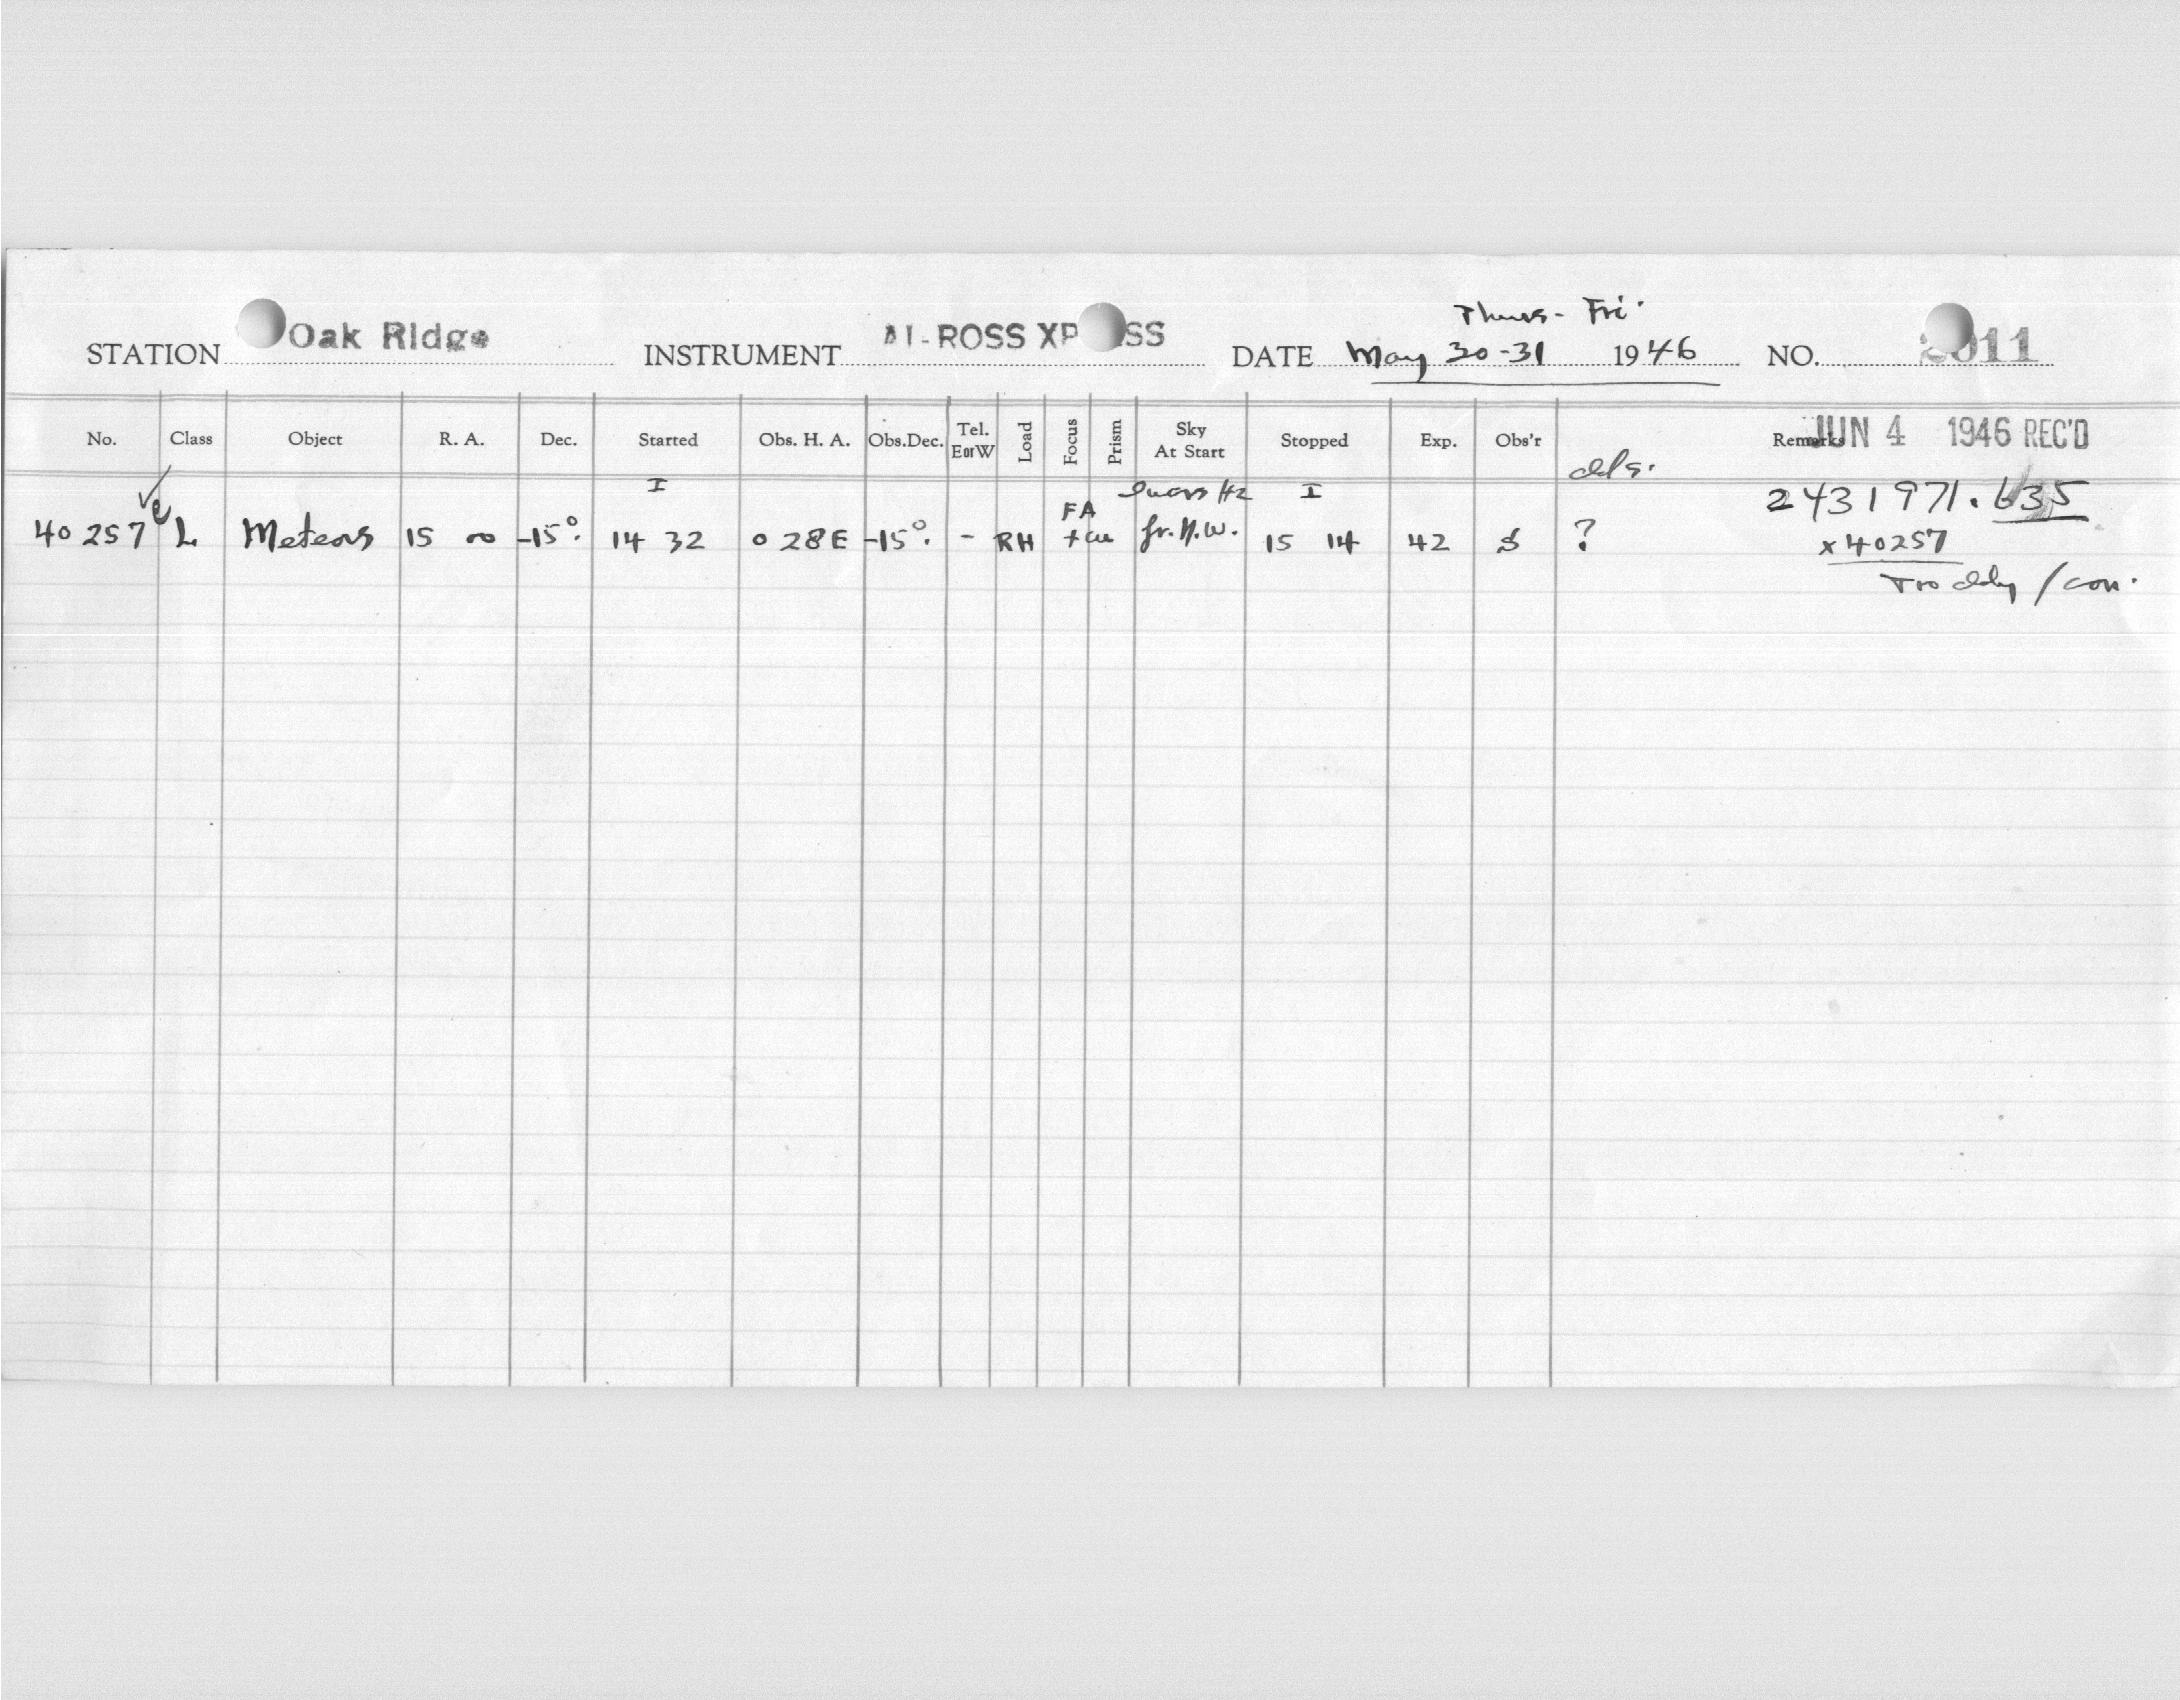 Thurs - Fri.
STATION Oak Ridge INSTRUMENT AI-ROSS XP SS DATE May 30-31 1946 NO. 2011
No. Class Object R. A. Dec. Started Obs. H. A. Obs.Dec. Tel. EorW Load Focus Prism Sky At Start Stopped Exp. Obs'r Remarks JUN 4 1946 REC'D
clds.
I I 2431971.635
FA
40257 L Meteors 15 00 -15°. 14 32 0 28E -15°. - RH fr. N.W. 15 14 42 S ?
x40257
/ con.